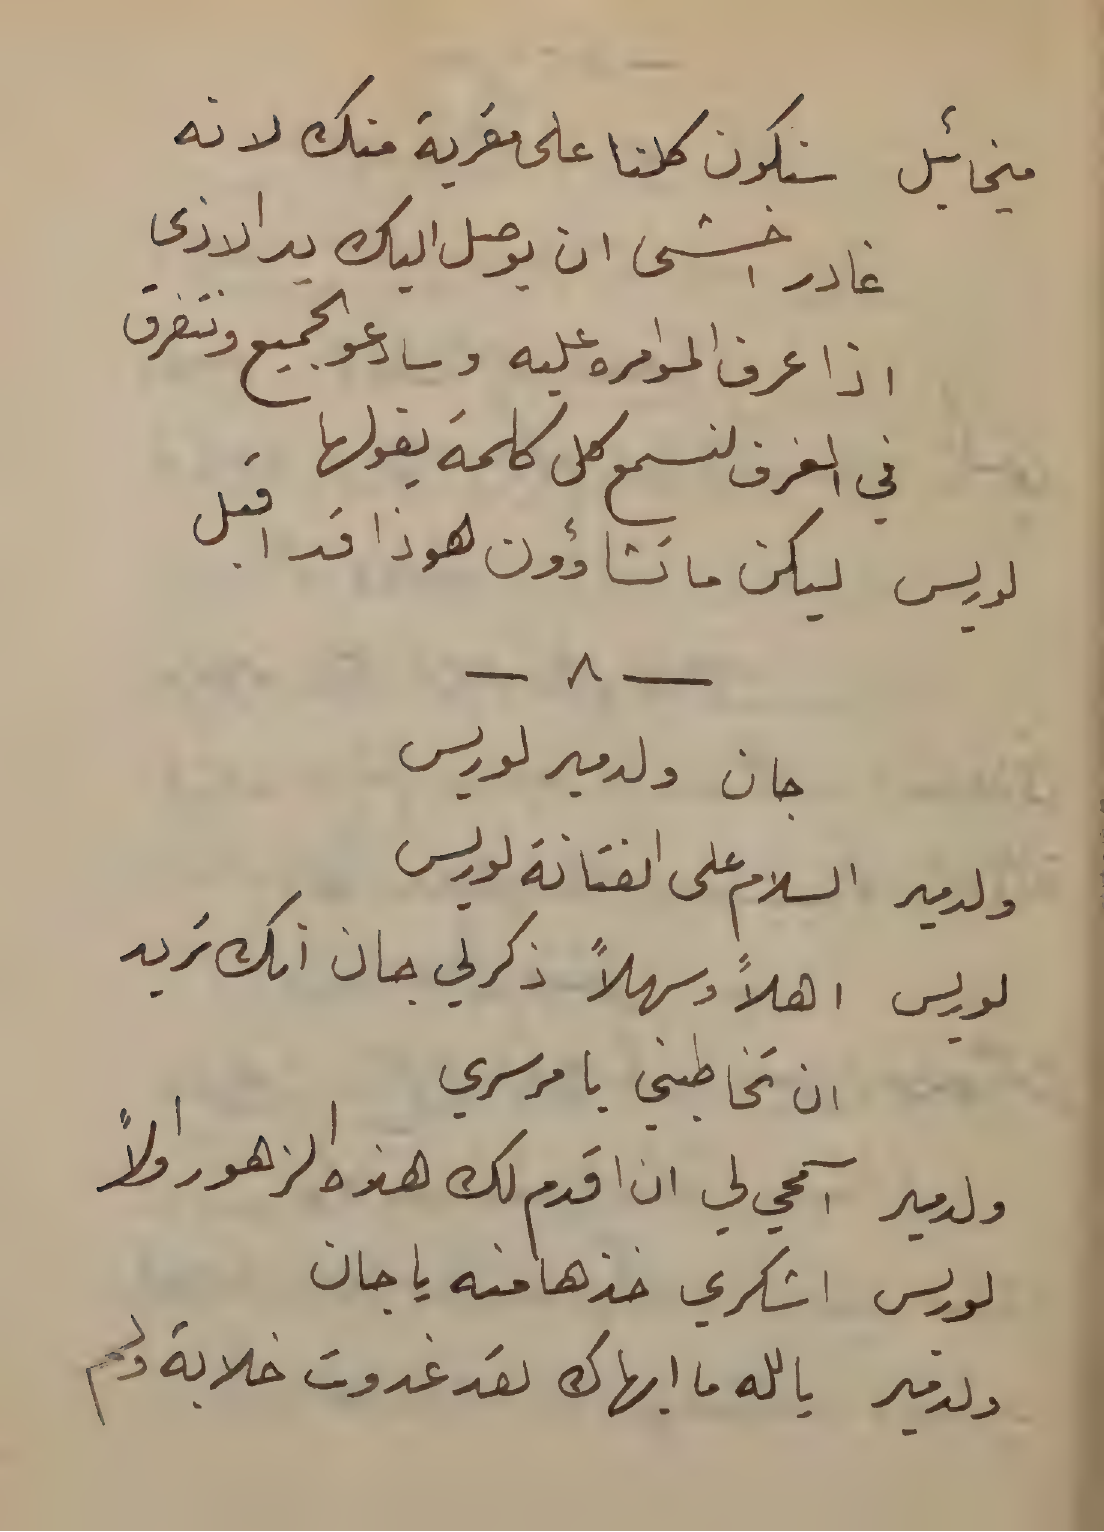 ميخائيل سنكون كلنا على مقربة منك لانه
غادر اخشى ان يوصل اليك يد الاذى
اذا عرف الموامره عليه وسادعو الجميع ونتفرق
في الغرف لنسمع كل كلمة يقولها
لوريس ليكن ما تشاؤون هوذا قد اقبل
— ٨ —
جان ولدمير لوريس
ولدمير السلام على الفتانة لوريس
لوريس اهلاً وسهلاً ذكر لي جان انك تريد
ان تخاطبني يا مرسري
ولدمير اسمحي لي ان اقدم لك هذه الزهور اولاً
لوريس اشكري خذها منه يا جان
ولدمير يالله ما ابهاك لقد غدوت خلابة ولم